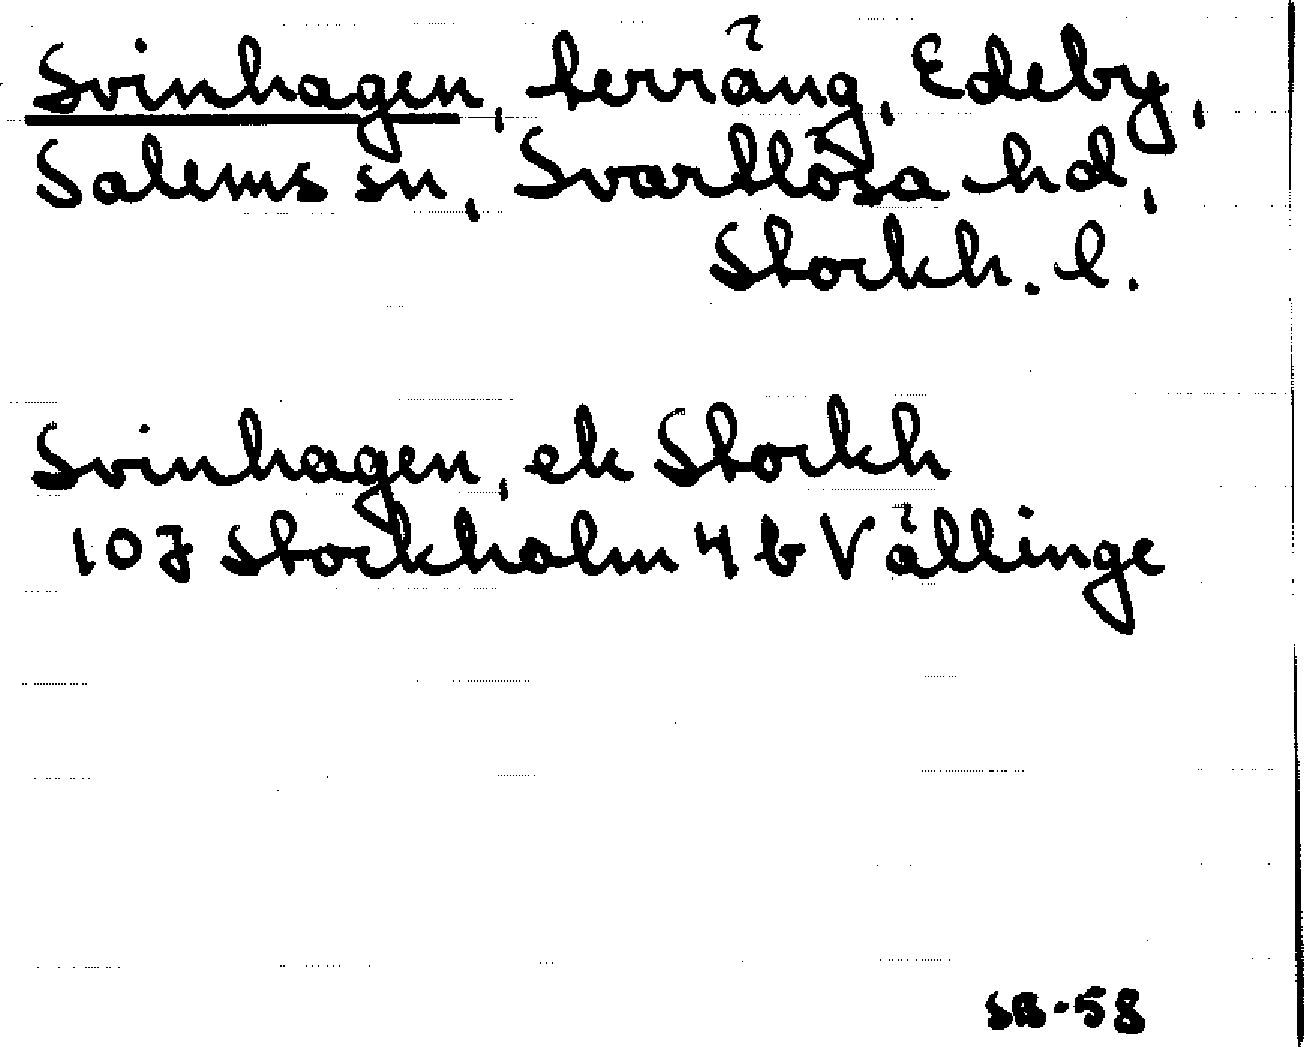 Svinhagen, terräng, Edeby,
Salems sn, Svartlösa hd,
Stockh. l.
Svinhagen, ek Stockh
10J Stockholm 4 b Vällinge
SB-58